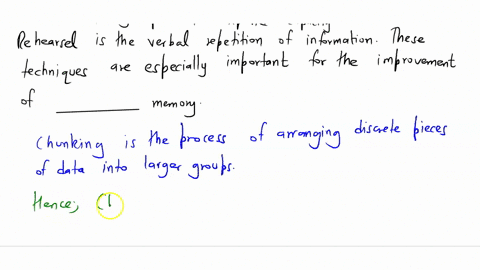 Rehearsel is the verbal repetition of information. These
techniques are especially important for the improvement
of __________ memory.
Chunking is the process of arranging discrete pieces
of data into larger groups.
Hence; (